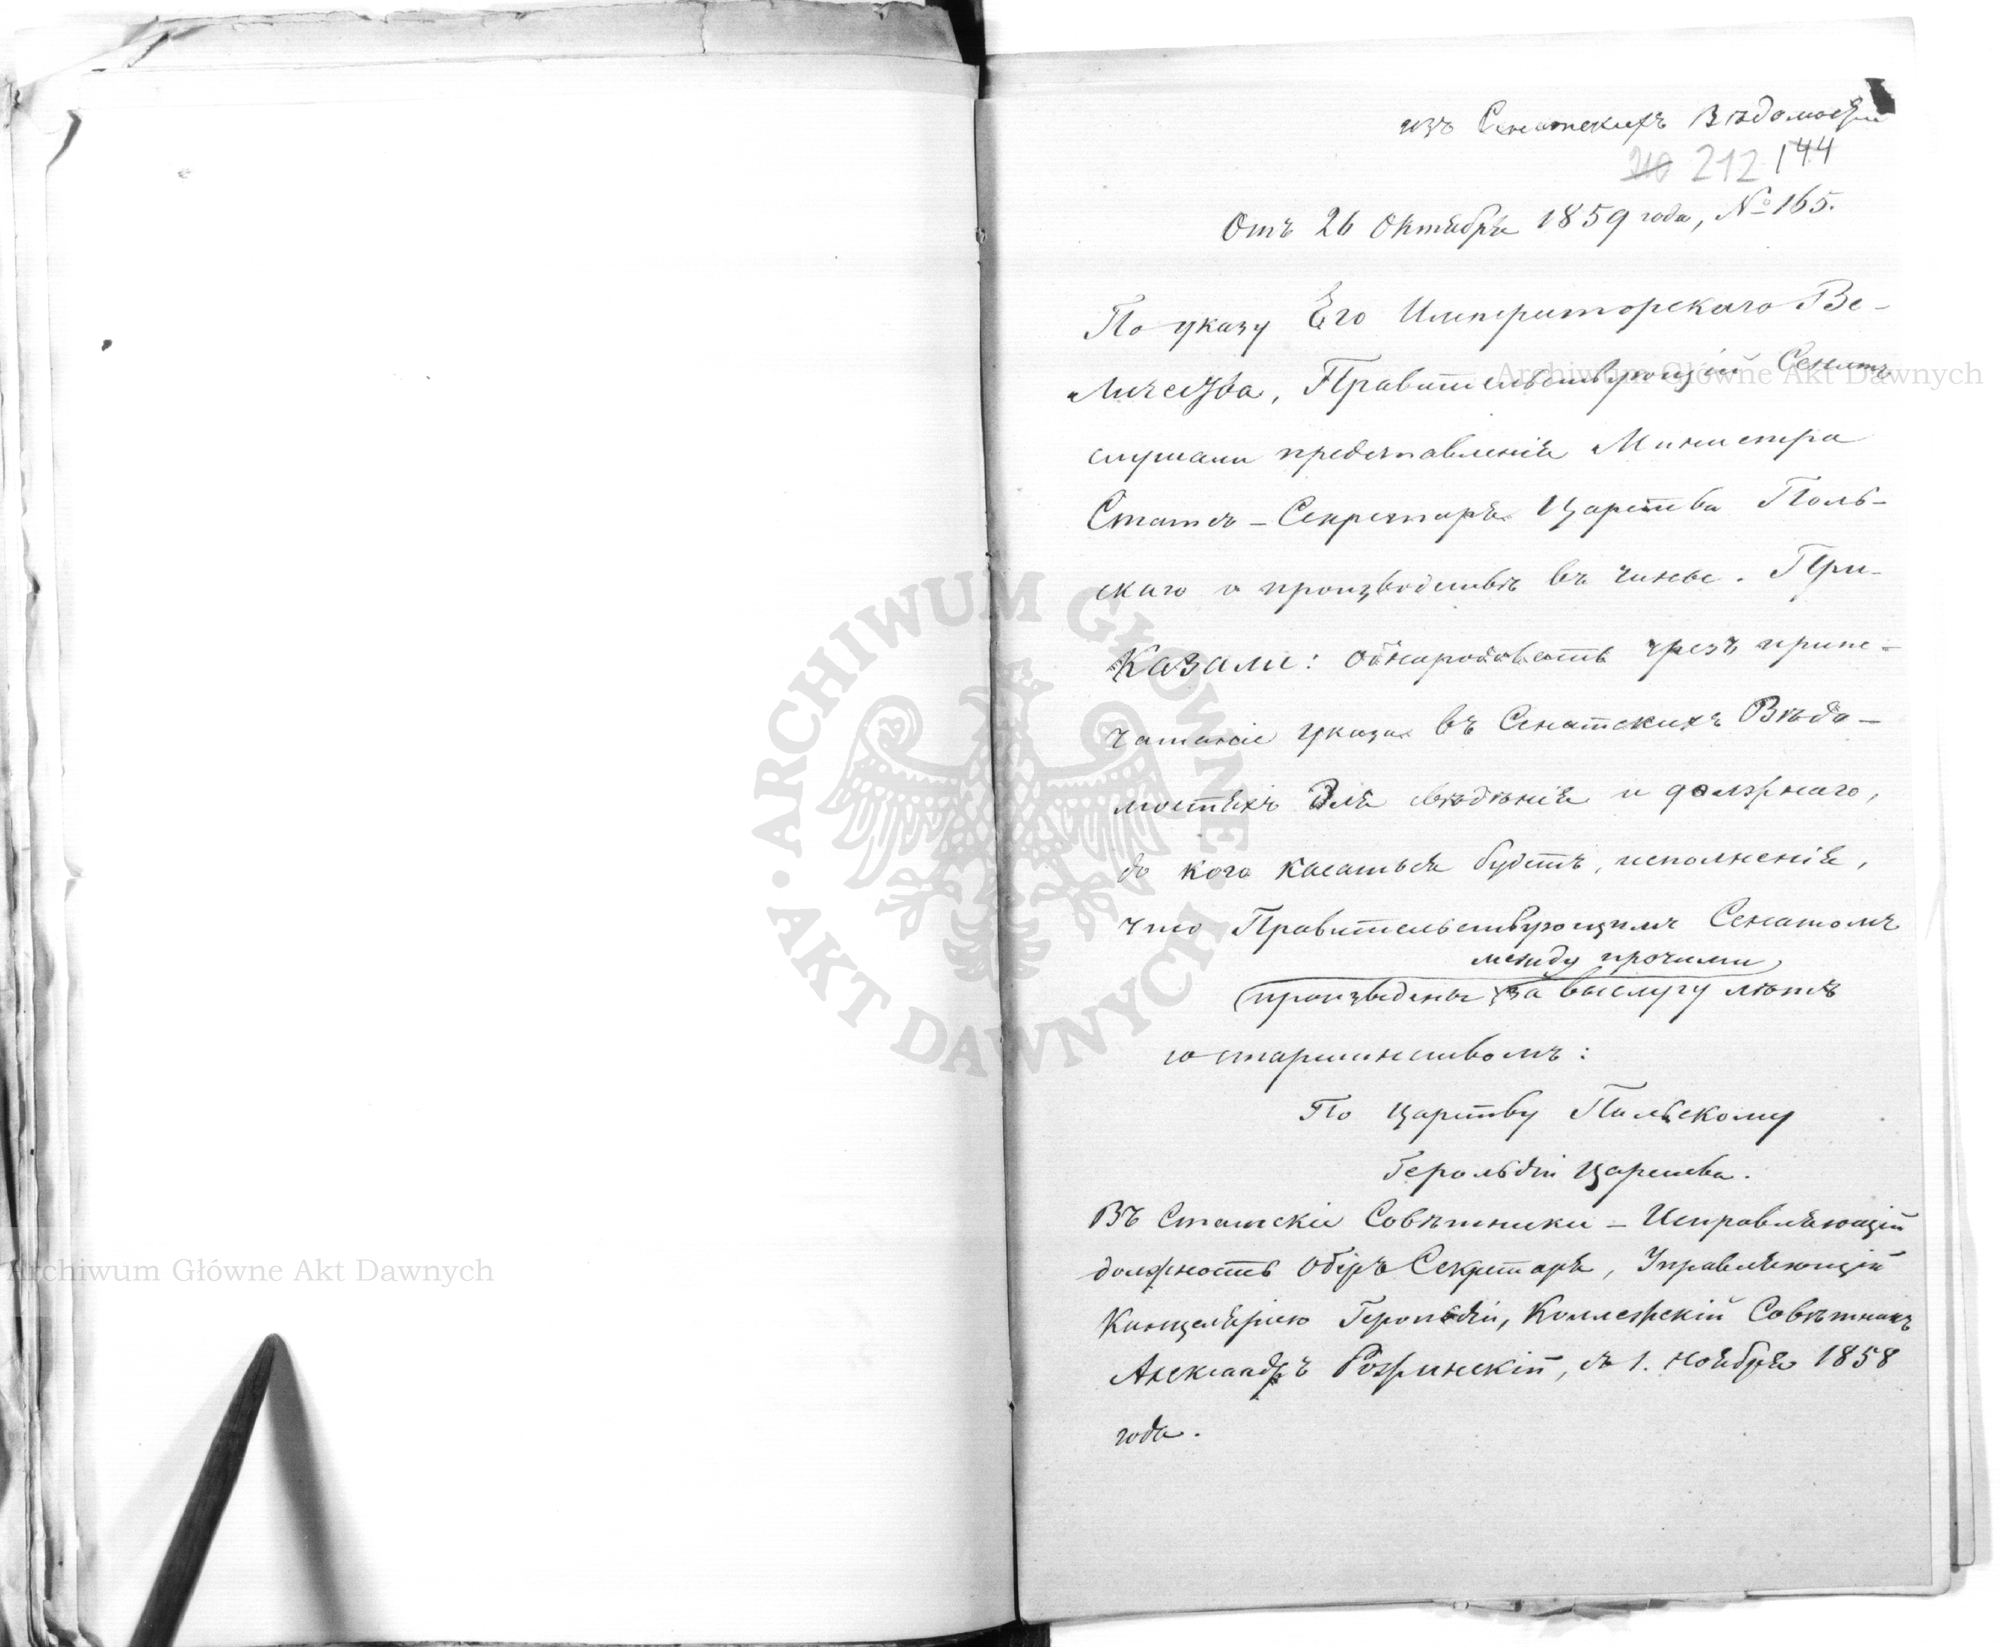 изъ Сенатскихъ Вѣдомостей
210 212 144
Отъ 26 Октября 1859 года, № 165.
По указу Его Императорскаго Ве-
личества, Правительствующій Сенатъ
слушали представленія Министра
Статсъ-Секретаря Царства Поль-
скаго о производствѣ въ чины. При-
казали: обнародовать чрезъ припе-
чатаніе указа въ Сенатскихъ Вѣдо-
мостяхъ для свѣдѣнія и должнаго,
до кого касаться будетъ, исполненія,
что Правительствующимъ Сенатомъ
между прочими
произведены за выслугу лѣтъ
со старшинствомъ:
По Царству Польскому
Герольдіи Царства.
Въ Статскіе Совѣтники – Исправляющій
должность Оберъ Секретаря, Управляющій
Канцеляріею Герольдіи, Коллежскій Совѣтникъ
Александръ Рожинскій, съ 1. Ноября 1858
года.
ARCHIWUM GŁÓWNE AKT DAWNYCH
Archiwum Główne Akt Dawnych
Archiwum Główne Akt Dawnych